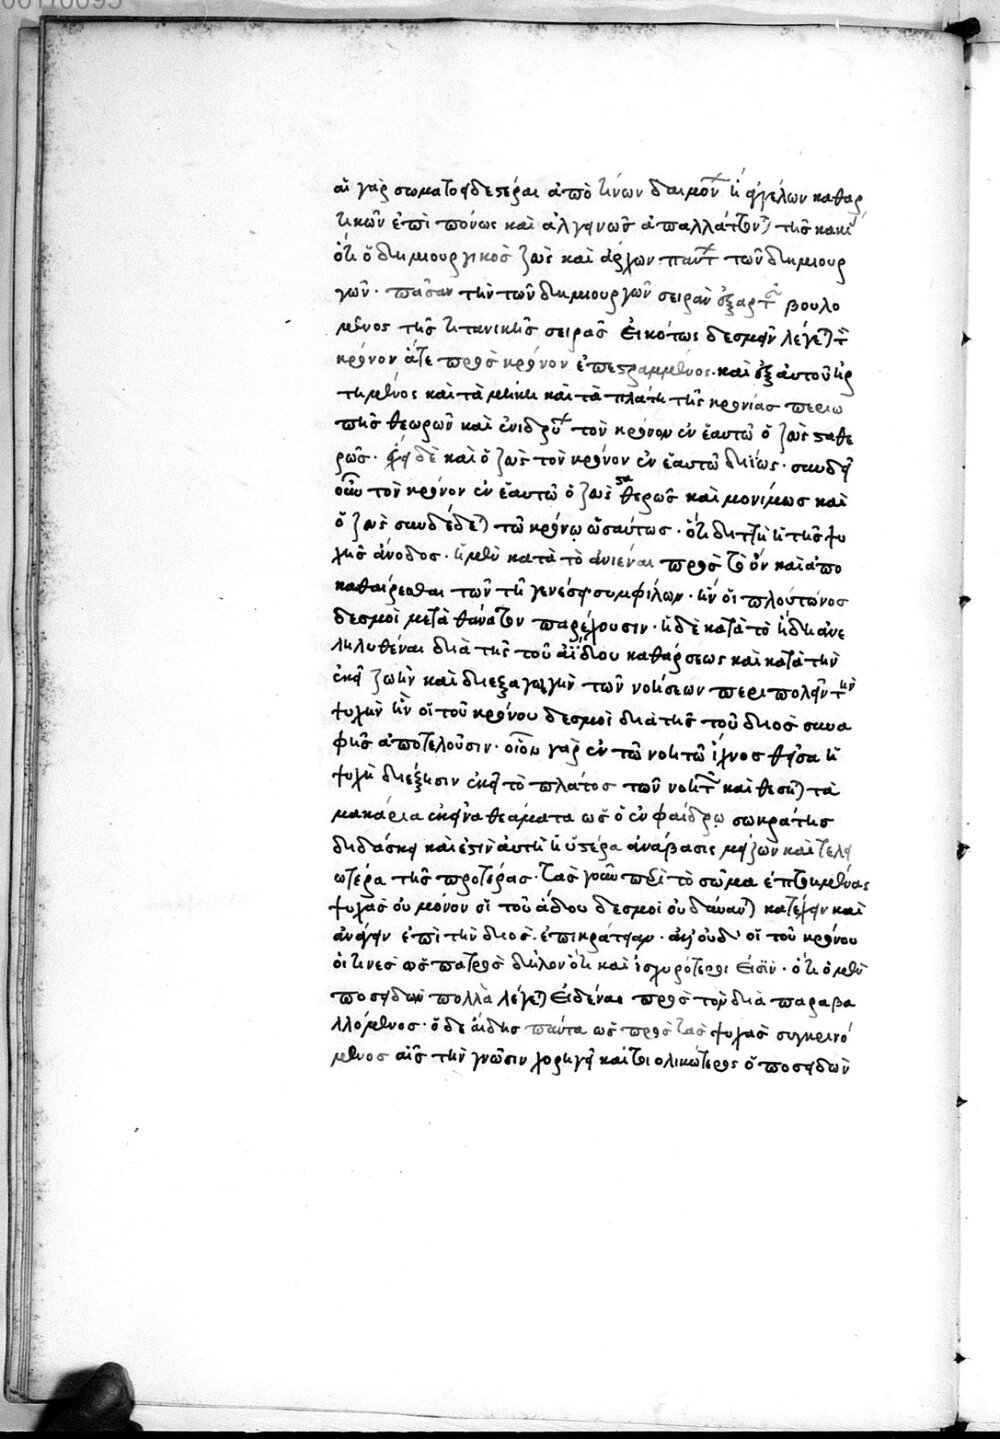 αἱ γὰρ σωματοειδέστεραι ἀπὸ τινων δαιμόνων ἢ ἀγγέλων καθαρ
τικῶν ἐπιπόνως καὶ ἀλγεινῶς ἀπαλλάττονται τῆς κακί
ὅτι ὁ δημιουργικὸς ζεὺς καὶ ἄρχων πάντων τῶν δημιουρ
γῶν· πᾶσαν τὴν τῶν δημιουργῶν σειρὰν ἐξαρτᾶν βουλό
μενος τῆς τιτανικῆς σειρᾶς εἰκότως δεσμεῖν λέγεται τὸν
κρόνον ἅτε πρὸς κρόνον ἐπεστραμμένος· καὶ ἐξ αὐτοῦ ἠρ
τημένος καὶ τὰ μήκη καὶ τὰ πλάτη τῆς κρονίας περιω
πῆς θεωρῶν καὶ ἐνιδρύων τὸν κρόνον ἐν ἑαυτῷ ὁ ζεὺς σταθε
ρῶς· δὲ καὶ ὁ ζεὺς τὸν κρόνον ἐν ἑαυτῷ διίως· συνδεῖ
οὖν τὸν κρόνον ἐν ἑαυτῷ ὁ ζεὺς σταθερῶς καὶ μονίμως καὶ
ὁ ζεὺς συνδέδεται τῷ κρόνῳ ὡσαύτως· ὅτι διττὴ ἡ τῆς ψυ
χῆς ἄνοδος· ἡ μὲν κατὰ τὸ ἀνιέναι πρὸς τὸ ὂν καὶ ἀπο
καθαίρεσθαι τῶν τῇ γενέσει συμφίλων· ἣν οἱ πλούτωνος
δεσμοὶ μετὰ θάνατον παρέχουσιν· ἡ δὲ κατὰ τὸ ἤδη ἀνε
ληλυθέναι διὰ τῆς τοῦ ἀϊδίου καθάρσεως καὶ κατὰ τὴν
ἐκεῖ ζωὴν καὶ διεξαγωγὴν τῶν νοήσεων περιπολεῖν τὴν
ψυχὴν ἣν οἱ τοῦ κρόνου δεσμοὶ διὰ τῆς τοῦ διὸς συνα
φῆς ἀποτελοῦσιν· οἷον γὰρ ἐν τῷ νοητῷ ἴχνος θεῖσα ἡ
ψυχὴ διέξεισιν ἐκεῖ τὸ πλάτος τῶν νοητῶν καὶ θεᾶται τὰ
μακάρια ἐκεῖνα θεάματα ὡς ὁ ἐν φαίδρῳ σωκράτης
διδάσκει καὶ ἔστιν αὐτὴ ἡ ὑστέρα ἀνάβασις μείζων καὶ τελει
ωτέρα τῆς προτέρας· τὰς γοῦν περὶ τὸ σῶμα ἐπτοημένας
ψυχὰς οὐ μόνον οἱ τοῦ ἅδου δεσμοὶ οὐ δύνανται κατέχειν καὶ
ἀνάγειν ἐπὶ τὴν διὸς ἐπικράτειαν· ἀλλ' οὐδ' οἱ τοῦ κρόνου
οἵτινες ὡς πατρὸς δῆλον ὅτι καὶ ἰσχυρότεροι εἰσίν· ὅτι ὁ μὲν
ποσειδῶν πολλὰ λέγεται εἰδέναι πρὸς τὸν δία παραβα
λλόμενος· ὁ δὲ ἅιδης πάντα ὡς πρὸς τὰς ψυχὰς συγκρινό
μενος αἷς τὴν γνῶσιν χορηγεῖ καίτοι ὁλικώτερος ὁ ποσειδῶν